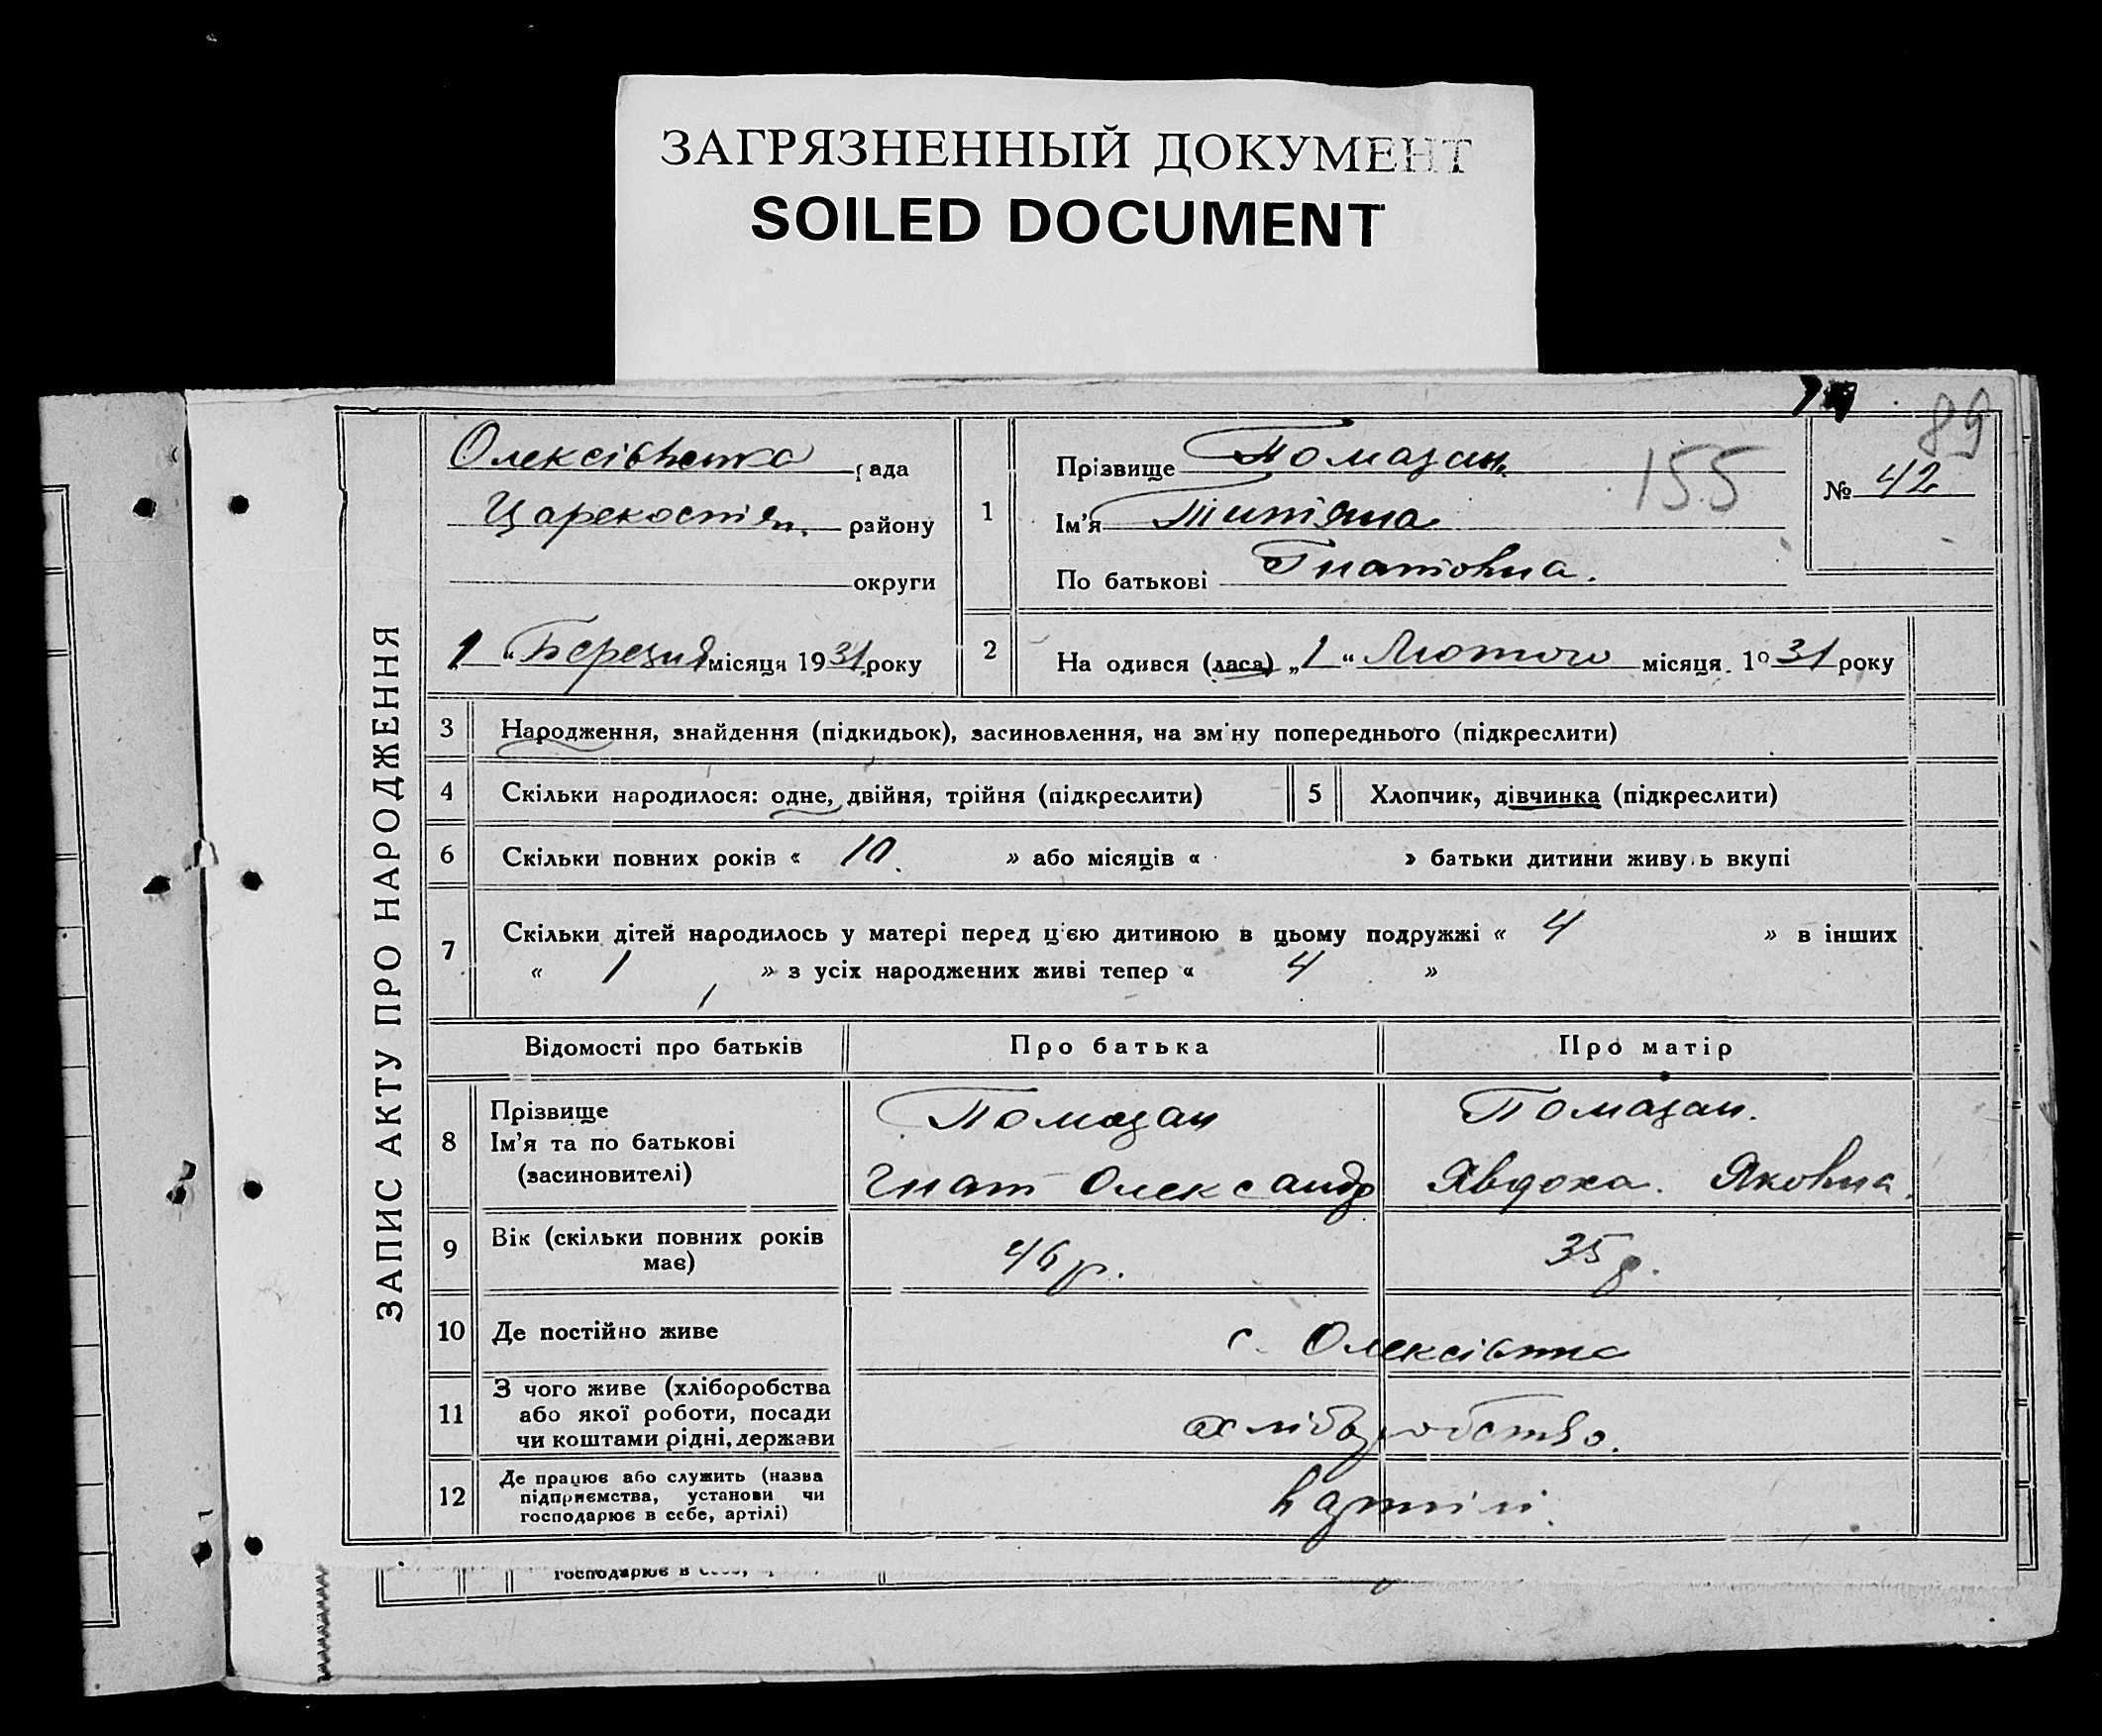 ЗАГРЯЗНЕННЫЙ ДОКУМЕНТ
SOILED DOCUMENT
89
ЗАПИС АКТУ ПРО НАРОДЖЕННЯ
Олексівська рада
Царекостян. району
округи
1 „ Березня місяця 1931 року
1
Прізвище Помазан
155
Ім'я Титяна
По батькові Гнатовна.
№ 42
2
На одився (лася) „1“ Лютого місяця 1931 року
3 Народження, знайдення (підкидьок), засиновлення, на зміну попереднього (підкреслити)
4 Скільки народилося: одне, двійня, трійня (підкреслити)
5 Хлопчик, дівчинка (підкреслити)
6 Скільки повних років « 10. » або місяців « » батьки дитини живуь вкупі
7 Скільки дітей народилось у матері перед цією дитиною в цьому подружжі « 4 » в інших
« 1 » з усіх народжених живі тепер « 4 »
Відомості про батьків Про батька Про матір
8 Прізвище
Ім'я та по батькові
(засиновителі)
Помазан
Гнат Олександр
Помазан.
Явдоха. Яковна.
9 Вік (скільки повних років
має)
46 р.
35 р.
10 Де постійно живе
с. Олексівка
11 З чого живе (хліборобства
або якої роботи, посади
чи коштами рідні, держави
хліборобство.
12 Де працює або служить (назва
підприємства, установи чи
господарює в себе, артілі)
в артілі.
господарює в себе,